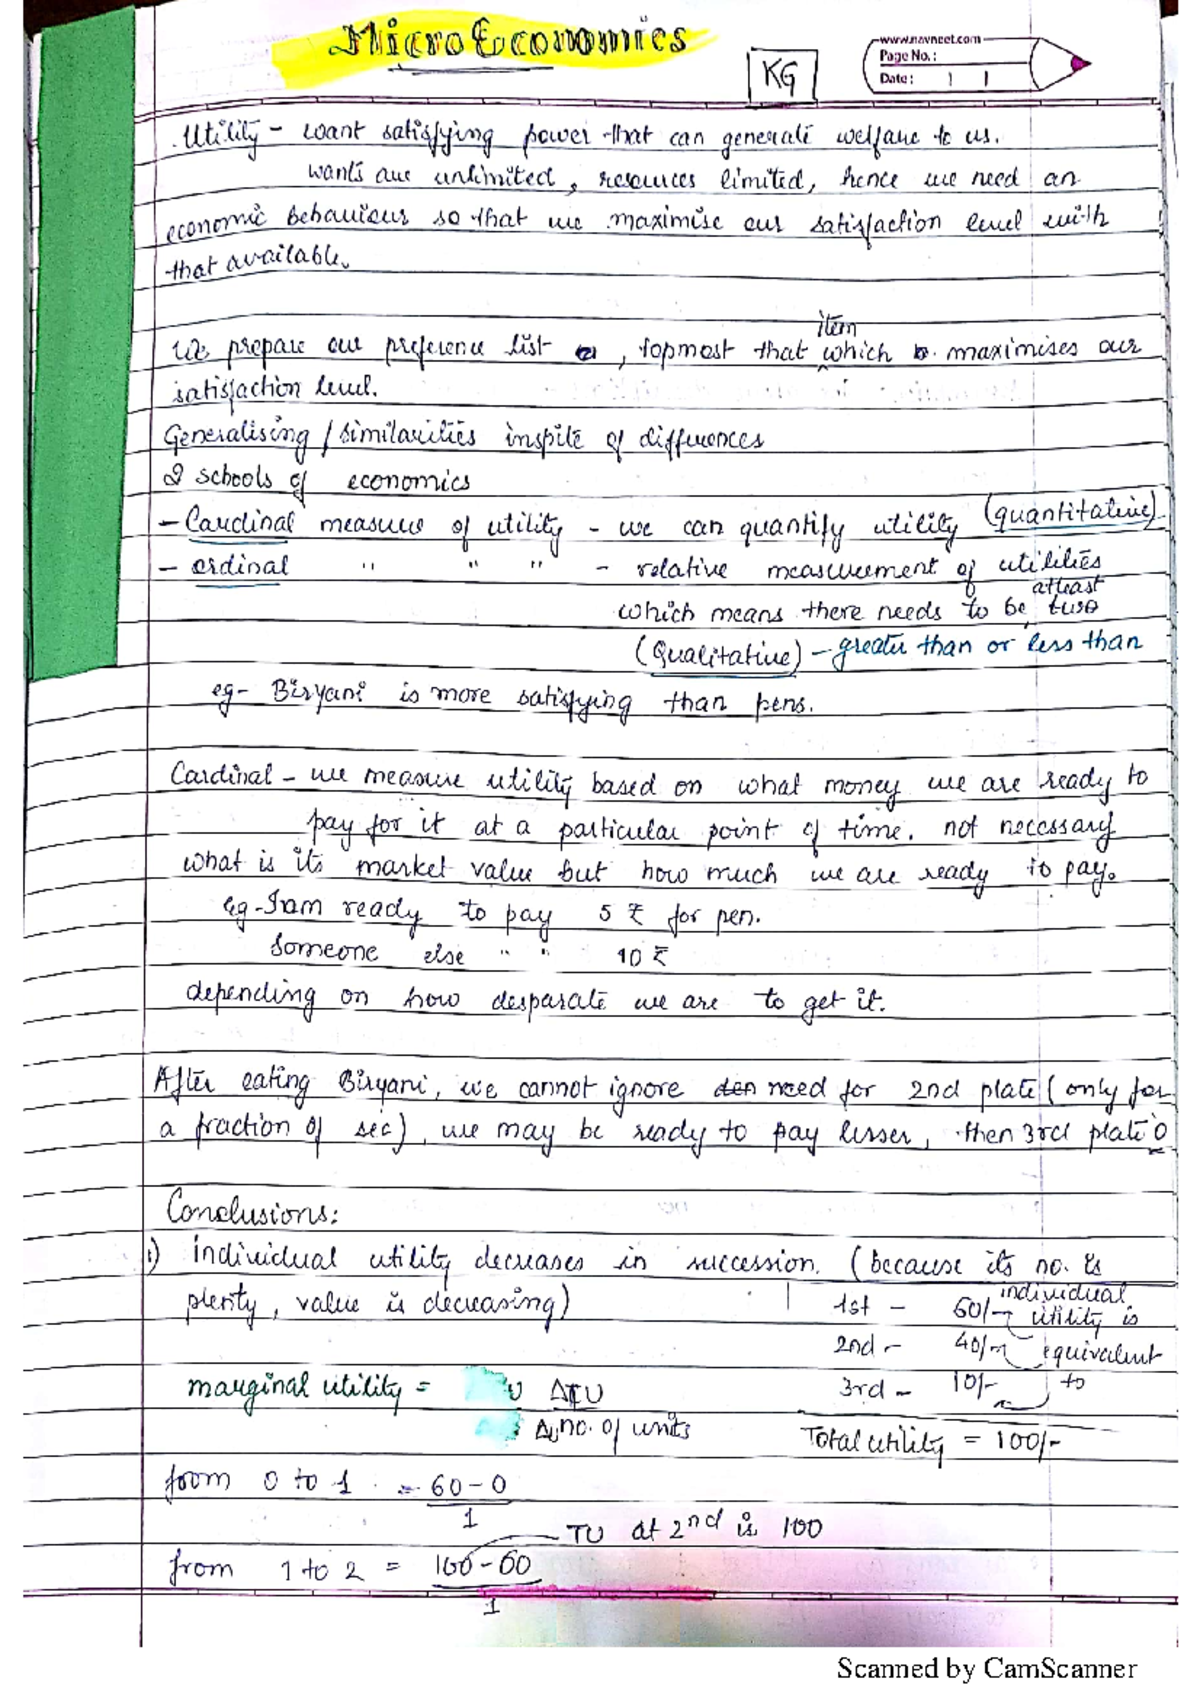 MicroEconomics
KG
www.navneet.com
Page No.:
Date:
Utility - want satisfying power that can generate welfare to us.
wants are unlimited, resources limited, hence we need an
economic behaviour so that we maximise our satisfaction level with
that available.
item
We prepare our preference list , topmost that which maximises our
satisfaction level.
Generalising / similarities inspite of differences
2 schools of economics
- Cardinal measure of utility - we can quantify utility (quantitative)
- ordinal " " " - relative measurement of utilities
atleast
which means there needs to be two
(Qualitative) - greater than or less than
eg- Biryani is more satisfying than pens.
Cardinal - we measure utility based on what money we are ready to
pay for it at a particular point of time. not necessary
what is its market value but how much we are ready to pay.
eg- I am ready to pay 5 ₹ for pen.
Someone else " " 10 ₹
depending on how desparate we are to get it.
After eating Biryani, we cannot ignore need for 2nd plate (only for
a fraction of sec), we may be ready to pay lesser, then 3rd plate 0
Conclusions:
i) individual utility decreases in succession. (because its no. is
plenty, value is decreasing)
1st - 60/- individual utility is
2nd - 40/- equivalent
3rd - 10/- to
marginal utility = ΔTU
Δ no. of units
Total utility = 100/-
from 0 to 1 = 60 - 0
1
TU at 2nd is 100
from 1 to 2 = 100 - 60
1
Scanned by CamScanner